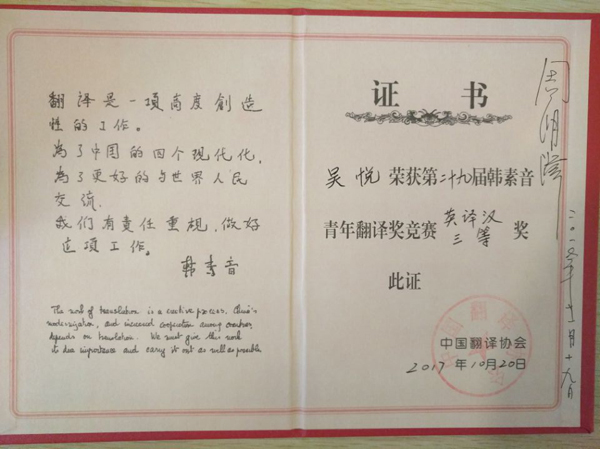 翻译是一項高度創造
性的工作。
为了中国的四个现代化,
为了更好的与世界人民
交流.
我们有责任重视,做好
这项工作。
韩素音
The work of translation is a creative process. China's
modernization, and increased cooperation among mankind,
depends on translation. We must give this work
its due importance and carry it out as well as possible
证 书
吴 悦 荣获第二十九届韩素音
青年翻译奖竞赛 英译汉
三等 奖
此证
中国翻译协会
2017 年 10 月 20 日